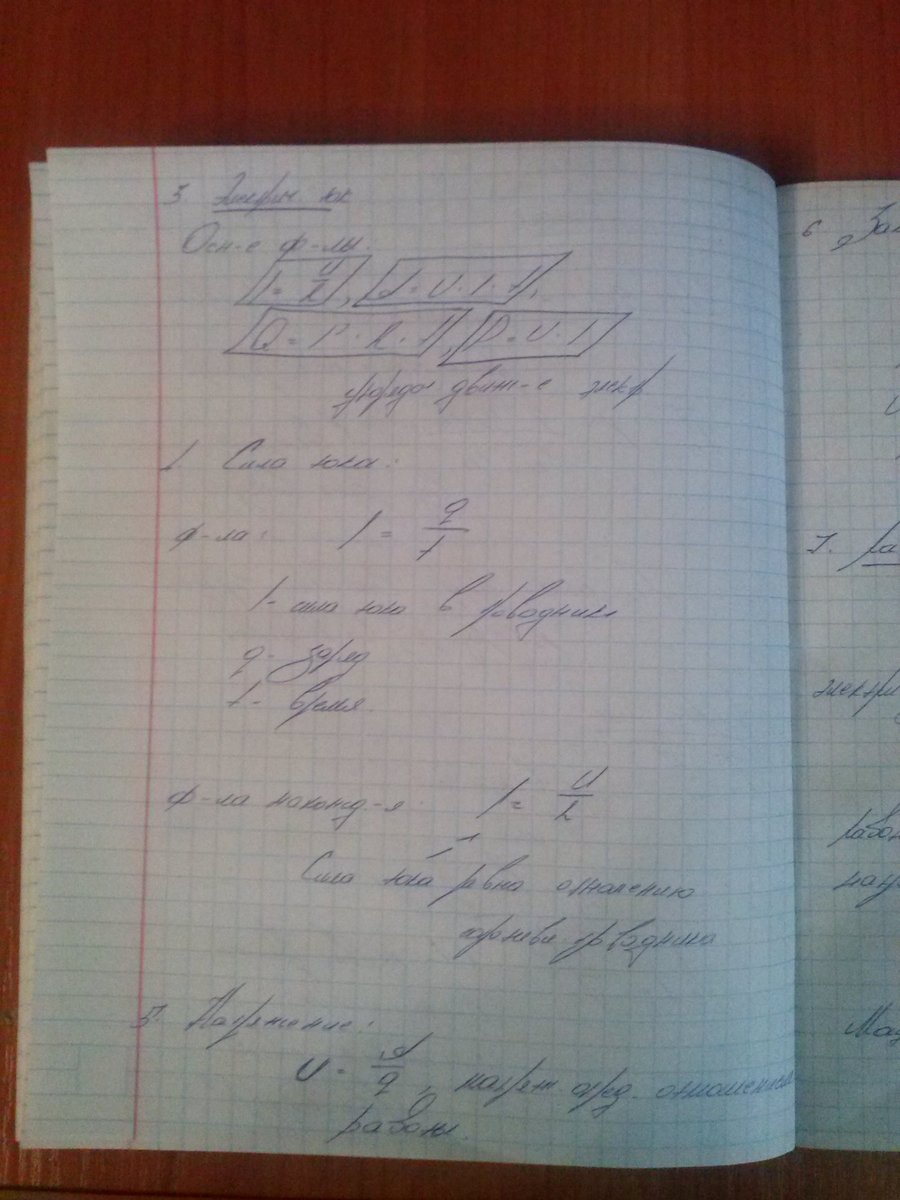 3. Электрич ток
Осн-е ф-лы:
I = U/R, A = U · I · t,
Q = I² · R · t, P = U · I
заряды движ-е электр.
1. Сила тока:
ф-ла: I = q/t
I - сила тока в проводнике
q - заряд
t - время.
ф-ла нахожд-я: I = U/R
Сила тока равна отношению
проводника
5. Напряжение:
U = A/q, напряж опред. отношением
работы.
6. Зак
7. Ра
электри
работ
напр
Маг